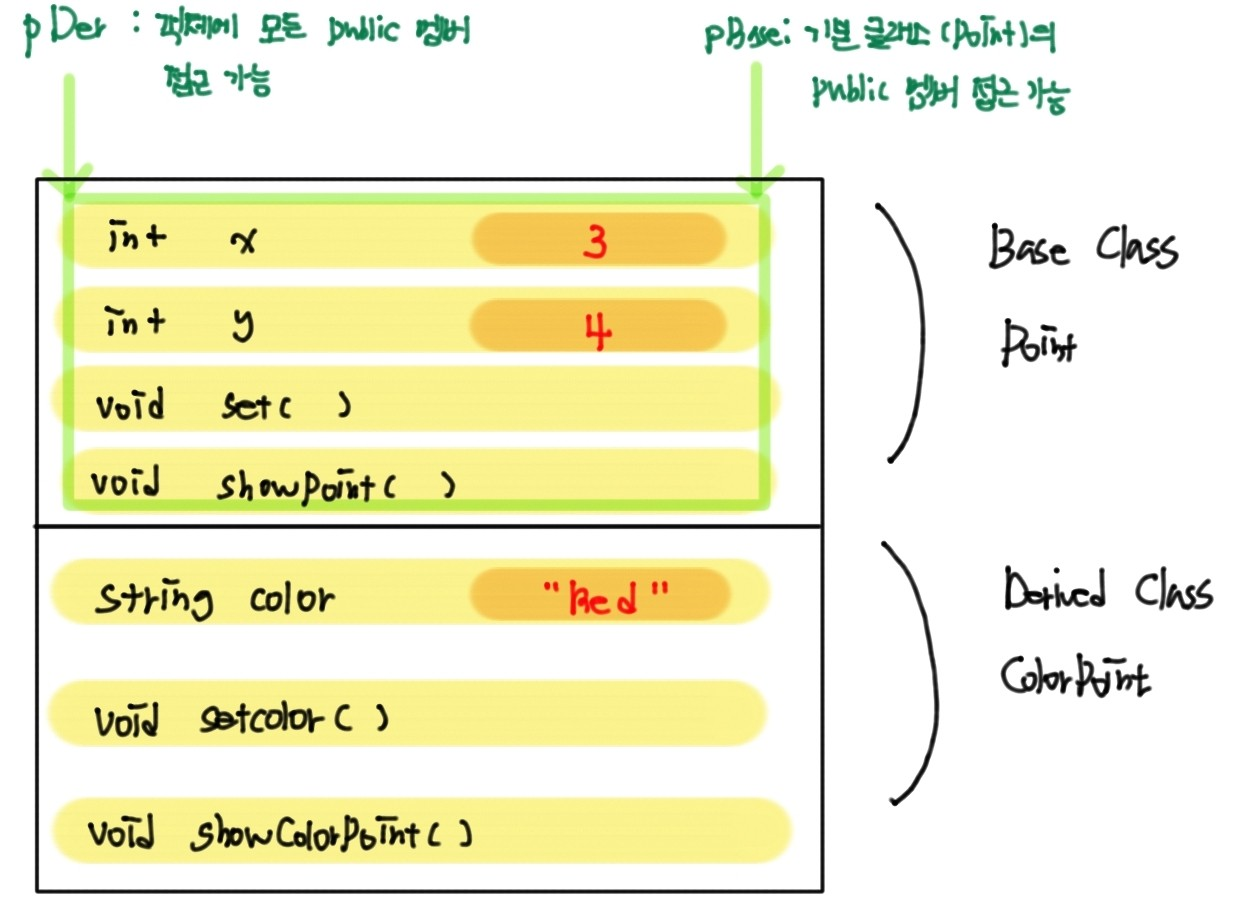 pDer : 객체에 모든 public 멤버
접근 가능
pBase : 기본 클래스 (Point)의
public 멤버 접근 가능
int x 3
int y 4
void set( )
void showPoint( )
Base Class
Point
String color "Red"
void setcolor( )
void showColorPoint( )
Derived Class
ColorPoint